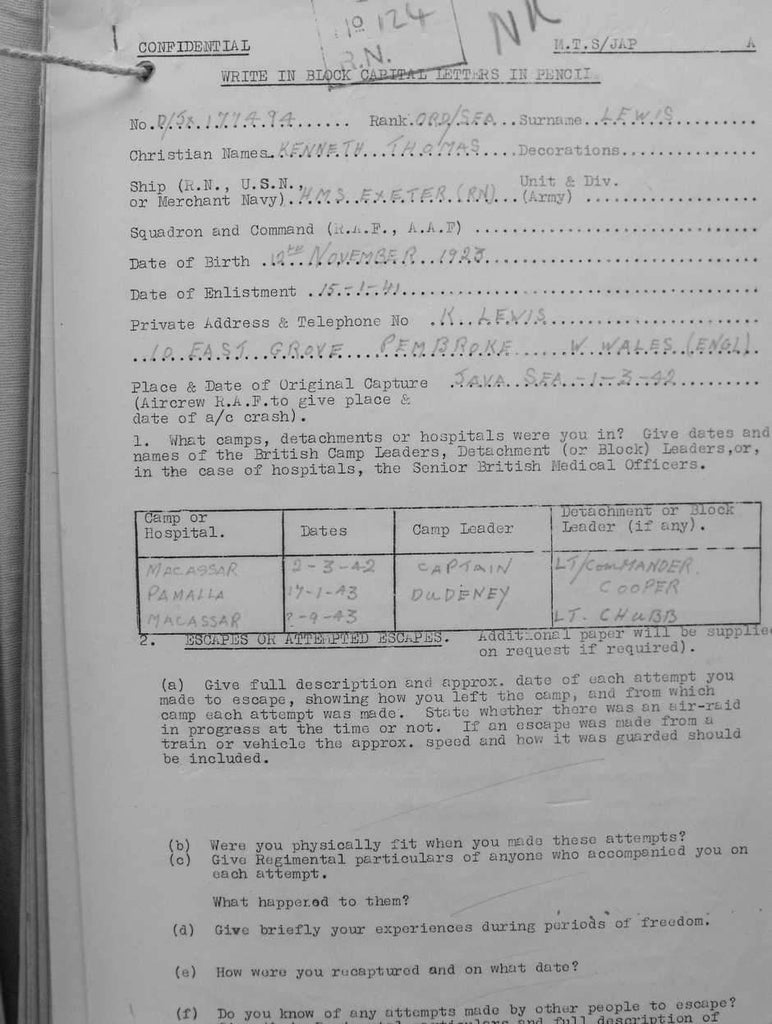 No 124
NR
R.N.
CONFIDENTIAL M.T.S/JAP A
WRITE IN BLOCK CAPITAL LETTERS IN PENCIL
No. D/JX.177494...... Rank. ORD/SEA...Surname..LEWIS.........
Christian Names. KENNETH...THOMAS.....Decorations..............
Ship (R.N., U.S.N., Unit & Div.
or Merchant Navy). HMS EXETER (RN)...(Army) ..................
Squadron and Command (R.A.F., A.A.F) .............................
Date of Birth ..12th NOVEMBER..1923............................
Date of Enlistment .15.-1-41....................................
Private Address & Telephone No .K..LEWIS......................
..10 EAST GROVE....PEMBROKE......W.WALES.(ENGL).
Place & Date of Original Capture .JAVA SEA.-1-3-42..........
(Aircrew R.A.F.to give place &
date of a/c crash).
1. What camps, detachments or hospitals were you in? Give dates and
names of the British Camp Leaders, Detachment (or Block) Leaders,or,
in the case of hospitals, the Senior British Medical Officers.
Camp or Hospital. Dates Camp Leader Detachment or Block Leader (if any).
MACASSAR 2-3-42 CAPTAIN LT/COMMANDER COOPER
PAMALLA 17-1-43 DUDENEY
MACASSAR ?-9-43 LT. CHUBB
2. ESCAPES OR ATTEMPTED ESCAPES. Additional paper will be supplie
on request if required).
(a) Give full description and approx. date of each attempt you
made to escape, showing how you left the camp, and from which
camp each attempt was made. State whether there was an air-raid
in progress at the time or not. If an escape was made from a
train or vehicle the approx. speed and how it was guarded should
be included.
(b) Were you physically fit when you made these attempts?
(c) Give Regimental particulars of anyone who accompanied you on
each attempt.
What happened to them?
(d) Give briefly your experiences during periods of freedom.
(e) How were you recaptured and on what date?
(f) Do you know of any attempts made by other people to escape?
particulars and full description of